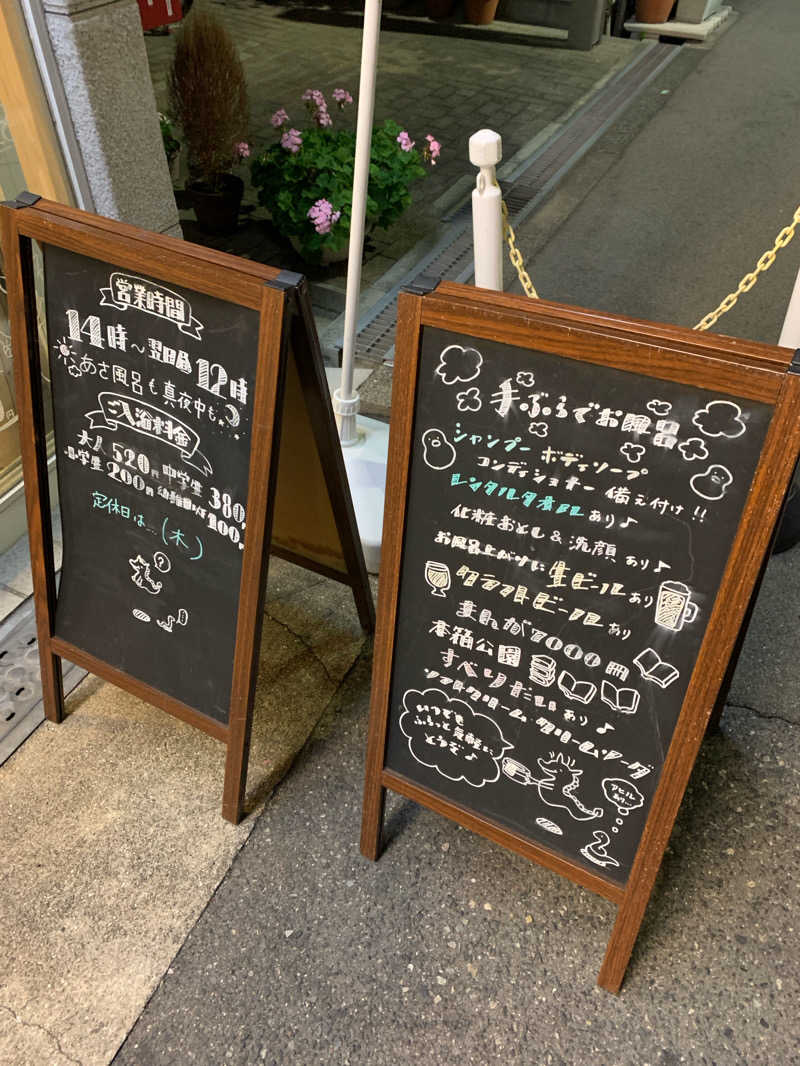 営業時間
14時～翌日 12時
あさ風呂も真夜中も
ご入浴料金
大人 520円 中学生 380円
小学生 200円 幼稚園以下 100円
定休日は…(木)
?
手ぶらでお風呂
シャンプー ボディソープ
コンディショナー 備え付け!!
レンタルタオル あり♪
化粧おとし&洗顔 あり♪
お風呂上がりに 生ビール あり
クラフトビール あり
まんが7000冊
巷箱公園
すべりだい あり♪
ソフトクリーム クリームソーダ
いつでも
ふらっと気軽に
どうぞ♪
アヒル